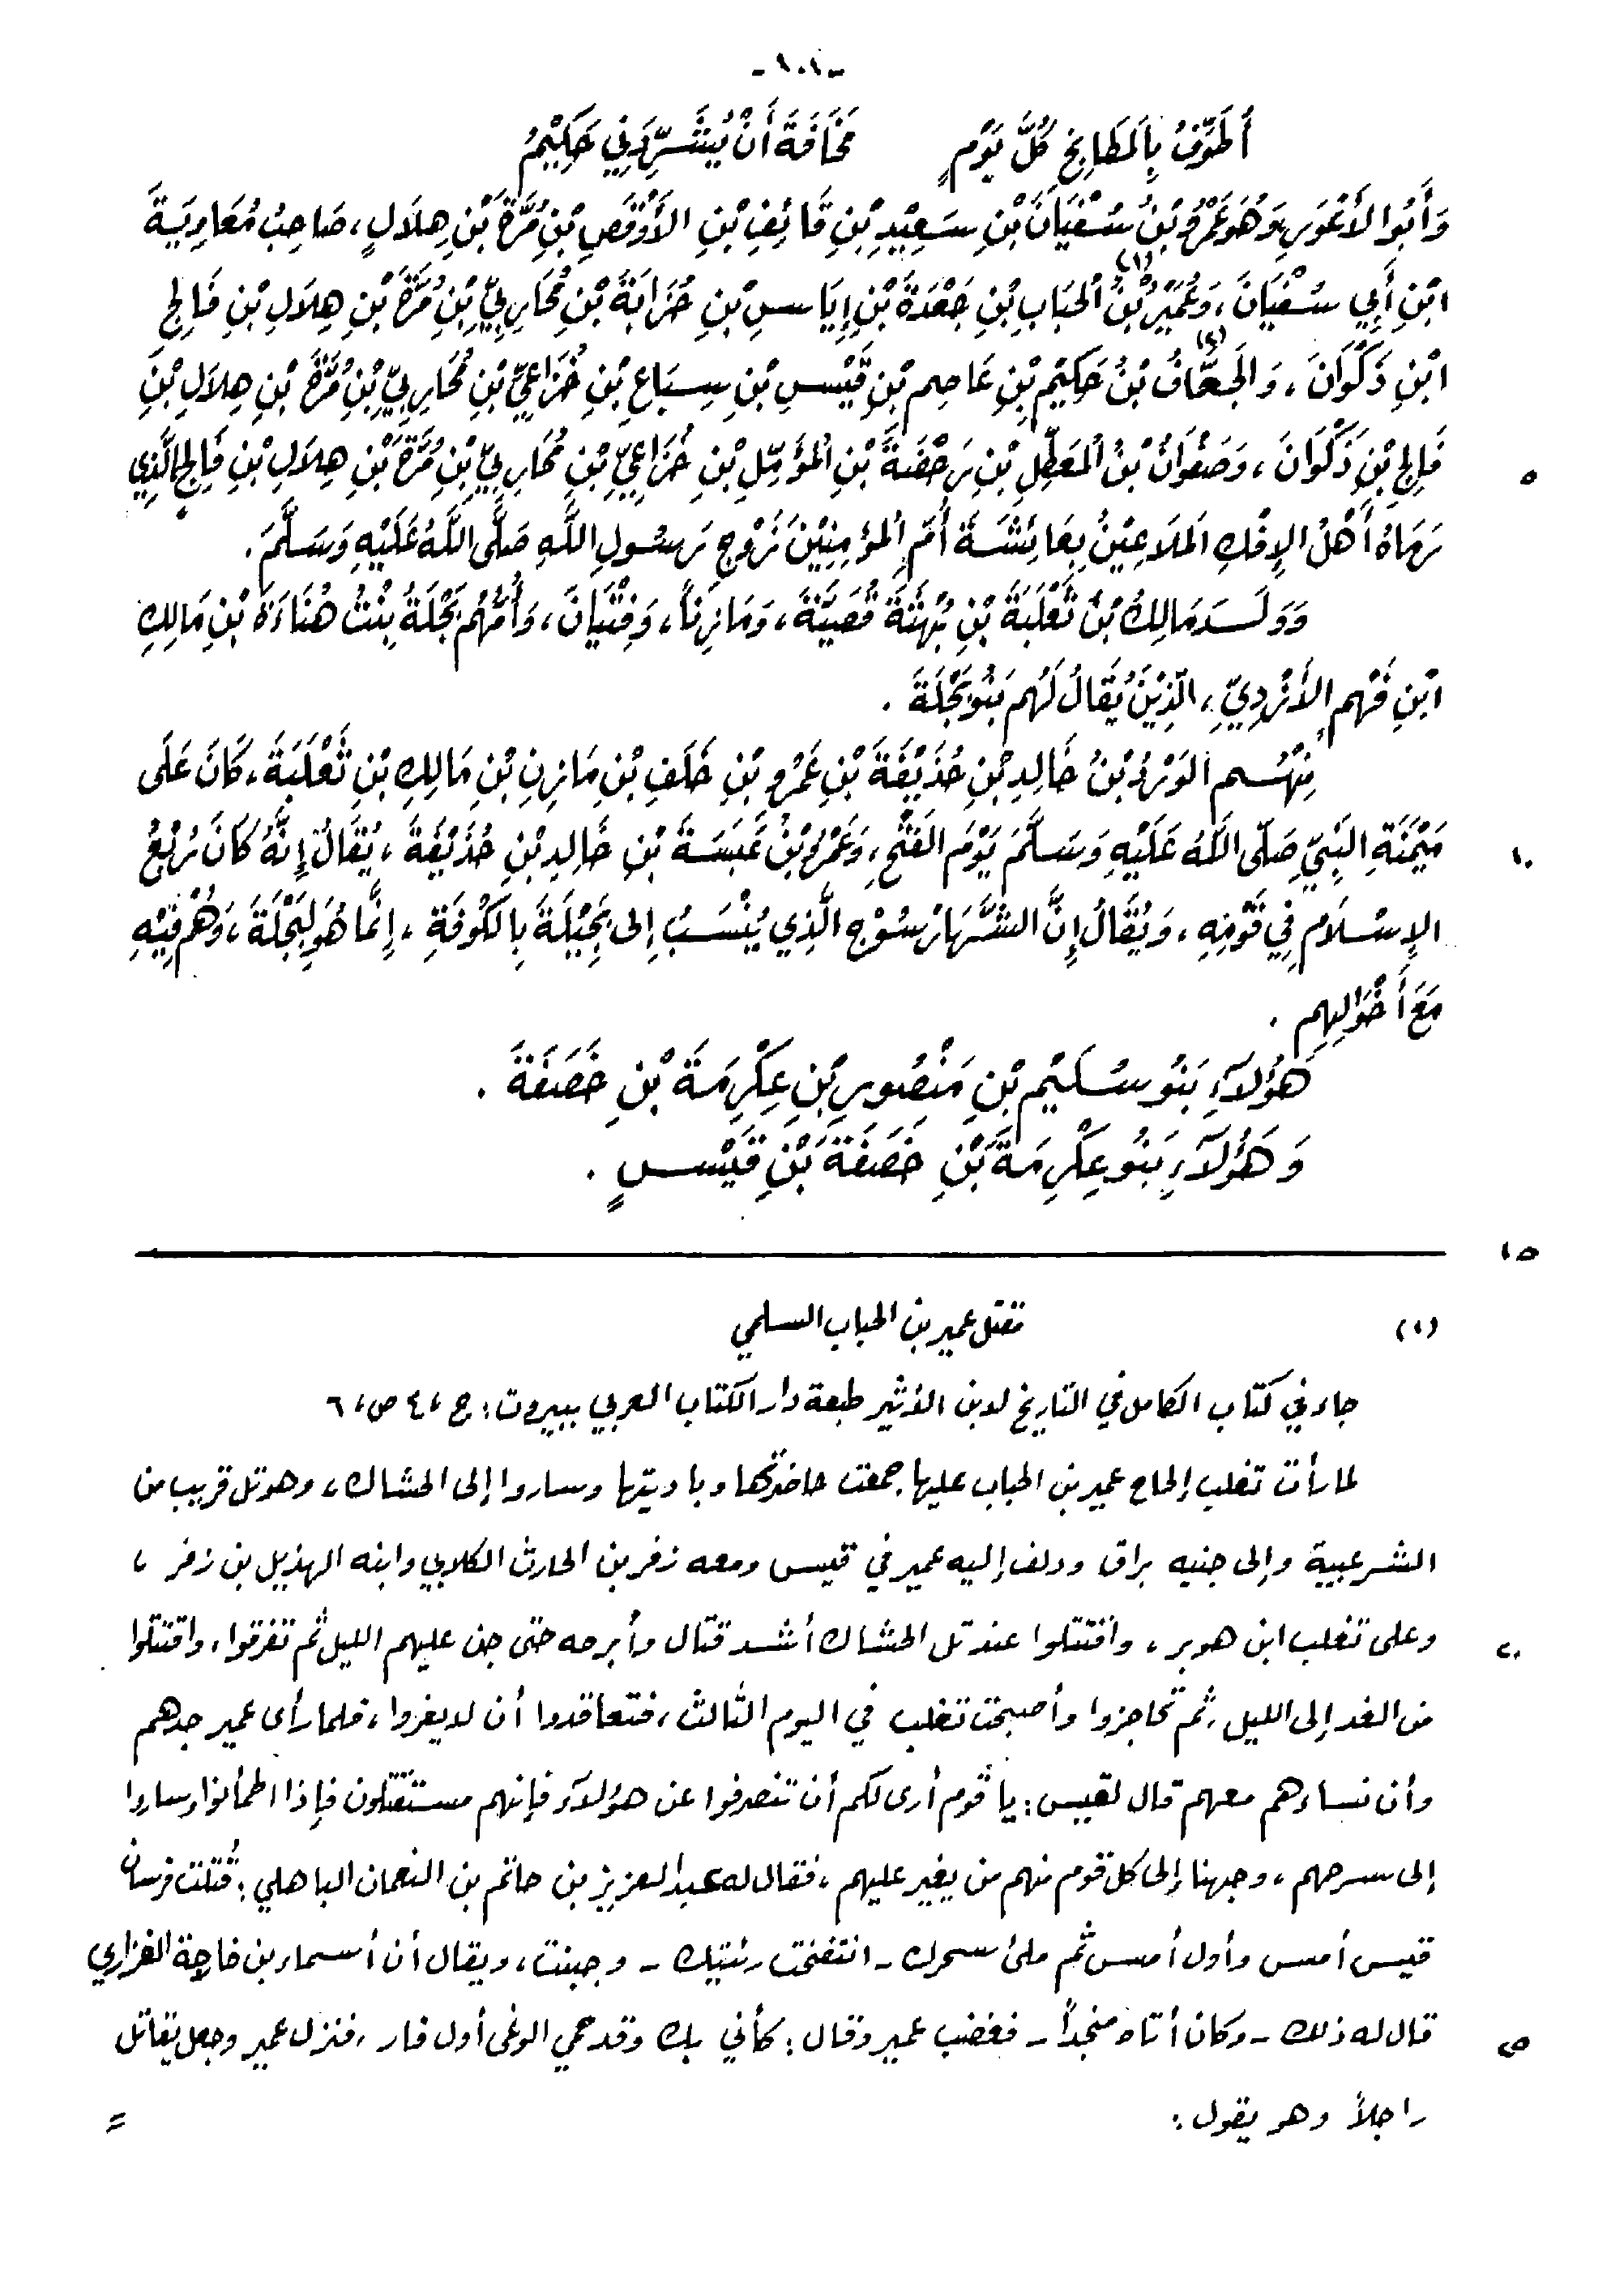 -١٠٨-
أُطَوِّفُ بِالمَطَابِخِ كُلَّ يَوْمٍ مَخَافَةَ أَنْ يُشَرِّدَنِي حَكِيْمُ
وَأَبُو الأَعْوَرِ وَهُوَ عَمْرُو بْنُ سُفْيَانَ بْنِ سَعِيْدِ بْنِ قَائِفِ بْنِ الأَوْقَصِ بْنِ مُرَّةَ بْنِ هِلَالٍ، صَاحِبُ مُعَاوِيَةَ
ابْنِ أَبِي سُفْيَانَ، وَعُمَيْرُ بْنُ الْحُبَابِ (١) بْنِ جَعْدَةَ بْنِ إِيَاسِ بْنِ حُزَابَةَ بْنِ مُحَارِبِيِّ بْنِ مُرَّةَ بْنِ هِلَالِ بْنِ فَالِجِ
ابْنِ ذَكْوَانَ، وَالجَحَّافُ (٢) بْنُ حَكِيْمِ بْنِ عَاصِمِ بْنِ قَيْسِ بْنِ سِبَاعِ بْنِ خُزَاعِيِّ بْنِ مُحَارِبِيِّ بْنِ مُرَّةَ بْنِ هِلَالِ بْنِ
فَالِجِ بْنِ ذَكْوَانَ، وَصَفْوَانُ بْنُ الْمُعَطِّلِ بْنِ رَحْضَةَ بْنِ الْمُؤَمِّلِ بْنِ خُزَاعِيِّ بْنِ مُحَارِبِيِّ بْنِ مُرَّةَ بْنِ هِلَالِ بْنِ فَالِجٍ الَّذِي ٥
رَمَاهُ أَهْلُ الإِفْكِ الْمَلَاعِيْنُ بِعَائِشَةَ أُمِّ الْمُؤْمِنِيْنَ زَوْجِ رَسُولِ اللَّهِ صَلَّى اللَّهُ عَلَيْهِ وَسَلَّمَ.
وَوَلَدَ مَالِكُ بْنُ ثَعْلَبَةَ بْنِ بُهْثَةَ قُصَيَّةَ، وَمَازِناً، وَفِتْيَانَ، وَأُمُّهُم بَجْلَةُ بِنْتُ هُنَاءَةَ بْنِ مَالِكِ
ابْنِ فَهْمٍ الأَزْدِيِّ، الَّذِيْنَ يُقَالُ لَهُم بَنُو بَجْلَةَ.
مِنْهُم الوَرْدُ بْنُ خَالِدِ بْنِ حُذَيْفَةَ بْنِ عَمْرِو بْنِ خَلَفِ بْنِ مَازِنِ بْنِ مَالِكِ بْنِ ثَعْلَبَةَ، كَانَ عَلَى
مَيْمَنَةِ النَّبِيِّ صَلَّى اللَّهُ عَلَيْهِ وَسَلَّمَ يَوْمَ الفَتْحِ، وَعَمْرُو بْنُ عَبَسَةَ بْنِ خَالِدِ بْنِ حُذَيْفَةَ، يُقَالُ إِنَّهُ كَانَ رُبْعُ ١٠
الإِسْلَامِ فِي قَوْمِهِ، وَيُقَالُ إِنَّ الشَّهَارْسُوْجِ الَّذِي يُنْسَبُ إِلَى بَجِيْلَةَ بِالكُوفَةِ، إِنَّمَا هُوَ لِبَجْلَةَ، وَهُمْ فِيْهِ
مَعَ أَخْوَالِهِم.
هَؤُلَاءِ بَنُو سُلَيْمِ بْنِ مَنْصُورِ بْنِ عِكْرِمَةَ بْنِ خَصَفَةَ.
وَهَؤُلَاءِ بَنُو عِكْرِمَةَ بْنِ خَصَفَةَ بْنِ قَيْسٍ.
١٥
(١) مقتل عمير بن الحباب السلمي
جاء في كتاب الكامل في التاريخ لابن الأثير طبعة دار الكتاب العربي ببيروت: ج ٤، ص ٦
لما رأت تغلب إلحاح عمير بن الحباب عليها جمعت حاضرتها وباديتها وساروا إلى الحشاك، وهو تل قريب من
الشرعبية وإلى جنبه براق ودلف إليه عمير في قيس ومعه زفر بن الحارث الكلابي وابنه الهذيل بن زفر،
وعلى تغلب ابن هوبر، واقتتلوا عند تل الحشاك أشد قتال وأبرحه حتى جن عليهم الليل ثم تفرقوا، واقتتلوا ٢٠
من الغد إلى الليل، ثم تحاجزوا وأصبحت تغلب في اليوم الثالث، فتعاقدوا أن لا يفروا، فلما رأى عمير جدهم
وأن نساءهم معهم قال لقيس: يا قوم أرى لكم أن تنصرفوا عن هؤلاء فإنهم مستقتلون فإذا اطمأنوا وساروا
إلى سرحهم، وجهنا إلى كل قوم منهم من يغير عليهم، فقال له عبد العزيز بن حاتم بن النعمان الباهلي: قُتلت فرسان
قيس أمس وأول أمس ثم ملئ سحرك - انتفخت رئتيك - وجبنت، ويقال أن أسماء بن خارجة الفزاري
قال له ذلك - وكان أتاه منجداً - فغضب عمير وقال: كأني بك وقد حمي الوغى أول فار، فنزل عمير وجعل يقاتل ٢٥
راجلاً وهو يقول: =